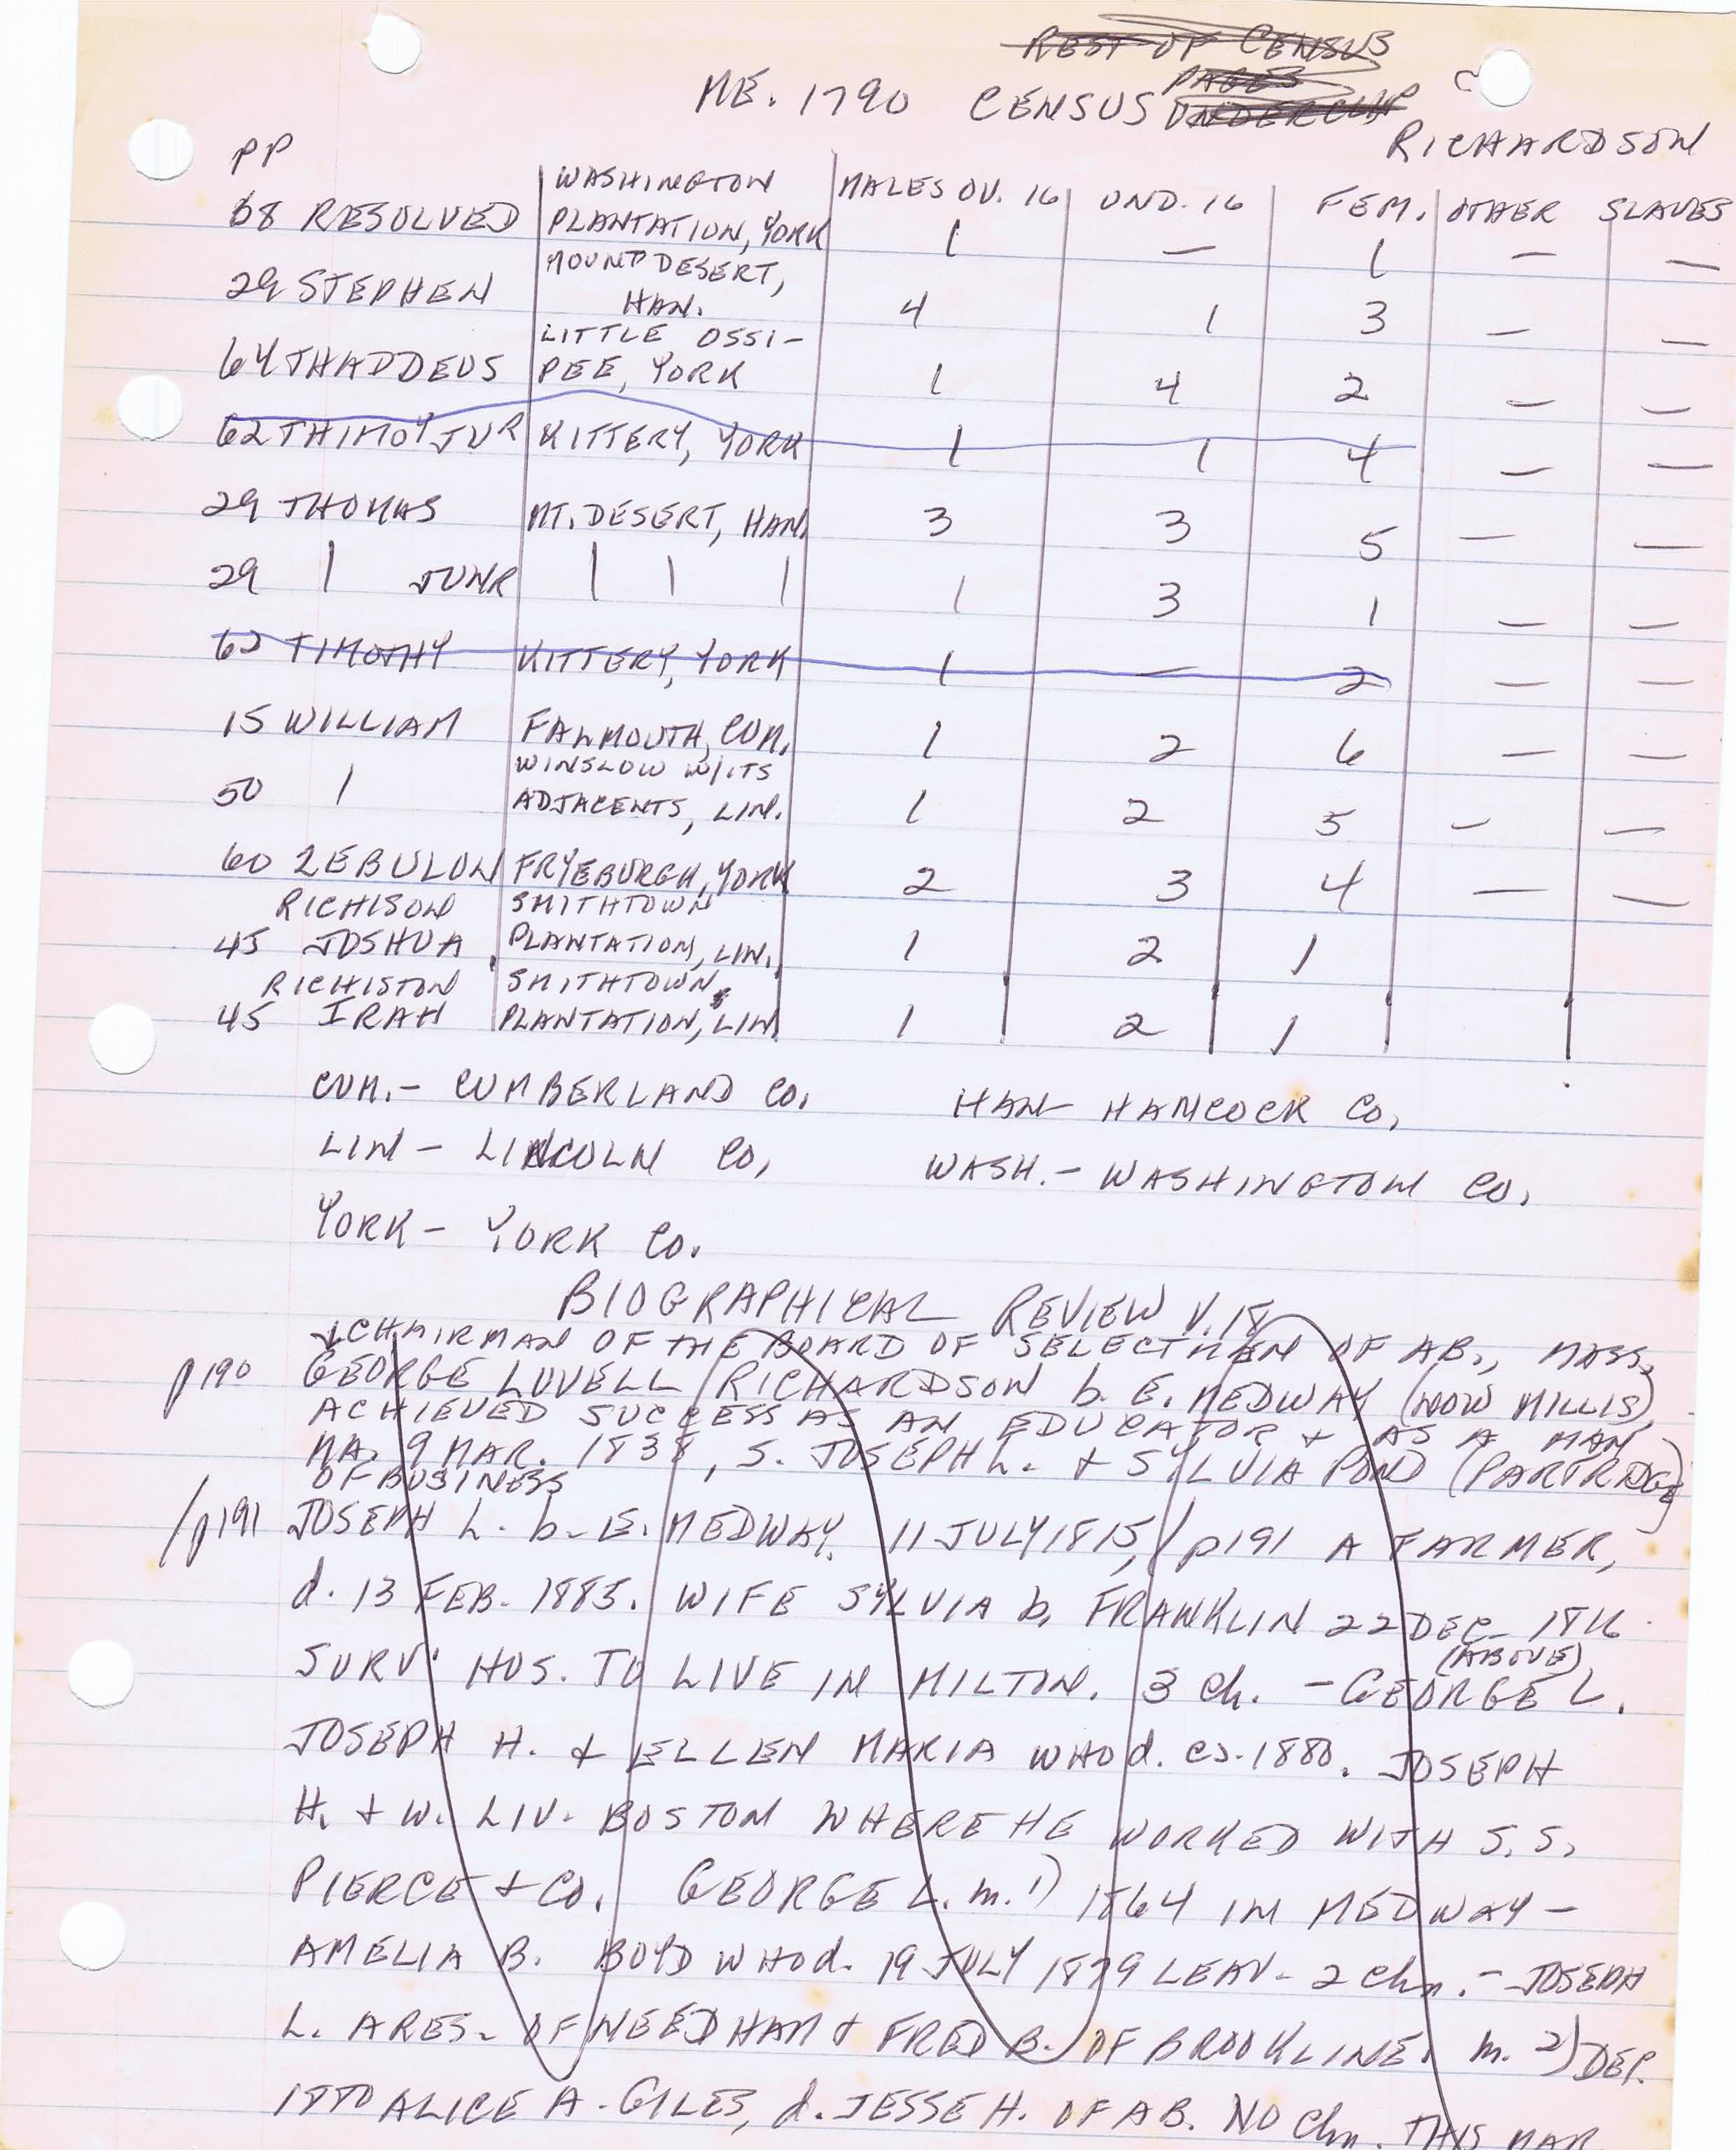 REST OF CENSUS
PAGES
ME. 1790 CENSUS
RICHARDSON
PP
WASHINGTON MALES OV. 16 UND. 16 FEM. OTHER SLAVES
68 RESOLVED PLANTATION, YORK 1 — 1 — —
MOUNT DESERT,
29 STEPHEN HAN. 4 1 3 — —
LITTLE OSSI-
64 THADDEUS PEE, YORK 1 4 2 — —
62 THIMOY JUR KITTERY, YORK 1 1 4 — —
29 THOMAS MT. DESERT, HAN. 3 3 5 — —
29 | JUNR | | | 1 3 1 — —
62 TIMOTHY KITTERY, YORK 1 — 2 — —
15 WILLIAM FALMOUTH, CUM. 1 2 6 — —
WINSLOW W/ITS
50 | ADJACENTS, LIN. 1 2 5 — —
60 ZEBULON FRYEBURGH, YORK 2 3 4 — —
RICHISON SMITHTOWN
45 JOSHUA PLANTATION, LIN. 1 2 1
RICHISTON SMITHTOWN
45 IRAH PLANTATION, LIN. 1 2 1
CUM.- CUMBERLAND CO. HAN- HANCOCK CO.
LIN - LINCOLN CO. WASH.- WASHINGTON CO.
YORK - YORK CO.
BIOGRAPHICAL REVIEW V. 18
CHAIRMAN OF THE BOARD OF SELECTMEN OF AB., MASS.
p190 GEORGE LOVELL RICHARDSON b. E. MEDWAY (NOW MILLIS)
ACHIEVED SUCCESS AS AN EDUCATOR & AS A MAN
MA. 9 MAR. 1838, S. JOSEPH L. & SYLVIA POND (PARTRIDGE)
OF BUSINESS
/p191 JOSEPH L. b. E. MEDWAY. 11 JULY 1815, /p191 A FARMER,
d. 13 FEB. 1885. WIFE SYLVIA b. FRANKLIN 22 DEC. 1816
(ABOVE)
SURV. HUS. TO LIVE IN MILTON. 3 Ch. - GEORGE L.
JOSEPH H. & ELLEN MARIA WHO d. ca. 1880. JOSEPH
H. & W. LIV. BOSTON WHERE HE WORKED WITH S. S.
PIERCE & CO. GEORGE L. m. 1) 1864 IN MEDWAY -
AMELIA B. BOYD WHO d. 19 JULY 1879 LEAV- 2 chn. - JOSEPH
L. A RES. OF NEEDHAM & FRED B. OF BROOKLINE. m. 2) DEC.
1880 ALICE A. GILES, d. JESSE H. OF AB. NO Chn. THIS MAR